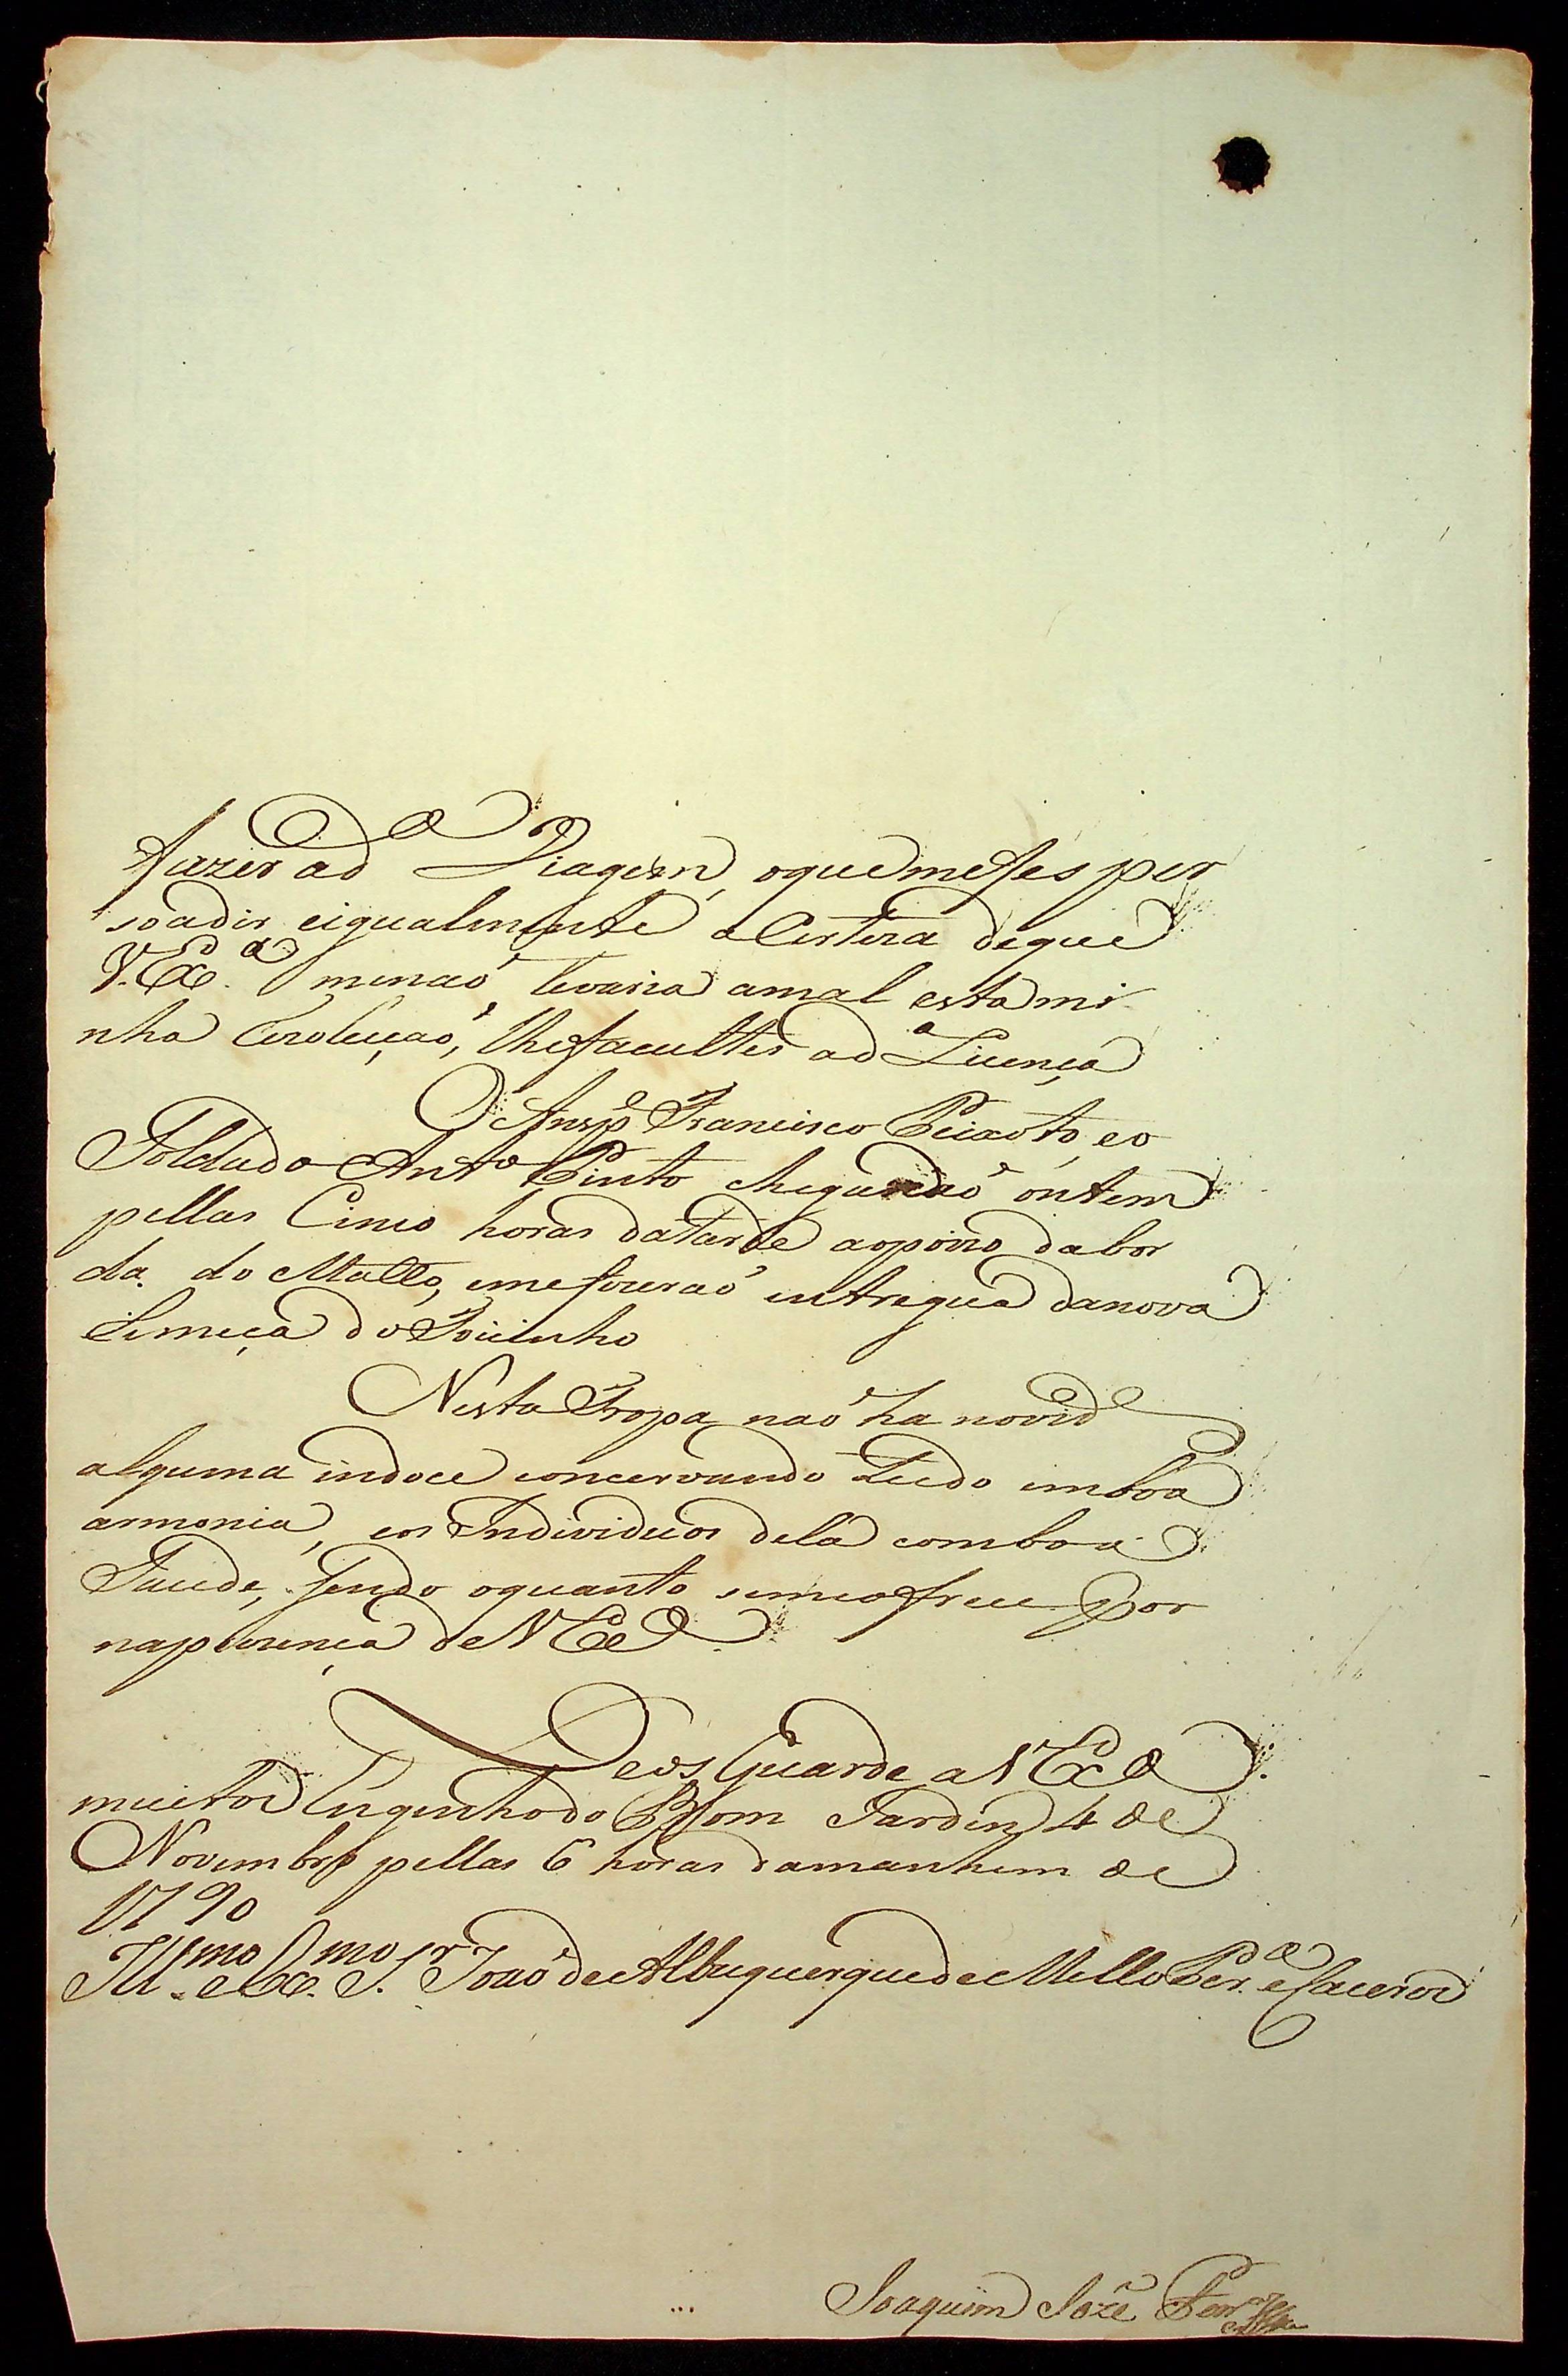 fazer a d.ª Viagem, oque mefes per
soadir eigualmente a Certeza deque
V. Ex.ª menaõ levaria amal esta mi
nha rezoluçaõ, lhefacultei ad.ª Licença
O Ansp.e Francisco Peixoto, eo
Soldado Ant.o Pinto chegaraõ ontem
pellas Cinco horas datarde aopoizo dabor
da do Matto, emefizeraõ entrega danova
do Toicinho
Nesta Tropa naõ ha novid.e
alguma indoce concervando Tudo emboa
armonia, eos Individuos dela comboa
Saude, sendo oquanto seme ofrece por
naprezença de V Ex.ª
Deos Guarde a V Ex.ª
muitos Engenho do Bom Jardim 4 de
Novembro pellas 6 horas damanhem de
1790
Ill.mo e Ex.mo S.r Joaõ de Albuquerque de Mello Per.ª e Caceres
Joaquim Jozé Ferr.ª